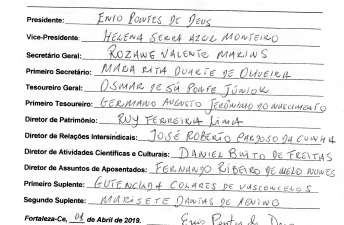 Presidente: ENIO PONTES DE DEUS
Vice-Presidente: HELENA SERRA AZUL MONTEIRO
Secretário Geral: ROZANE VALENTE MARINS
Primeiro Secretário: MARIA RITA DUARTE DE OLIVEIRA
Tesoureiro Geral: OSMAR DE SÁ PONTE JÚNIOR
Primeiro Tesoureiro: GERMANO AUGUSTO JERÔNIMO DO NASCIMENTO
Diretor de Patrimônio: RUY FERREIRA LIMA
Diretor de Relações Intersindicais: JOSÉ ROBERTO CARDOSO DA CUNHA
Diretor de Atividades Científicas e Culturais: DANIEL BRITO DE FREITAS
Diretor de Assuntos de Aposentados: FERNANDO RIBEIRO DE MELO NUNES
Primeiro Suplente: GUTENCIADA COLARES DE VASCONCELOS
Segundo Suplente: MARISETE DANTAS DE AQUINO
Fortaleza-Ce, 01 de Abril de 2019. Enio Pontes de Deus